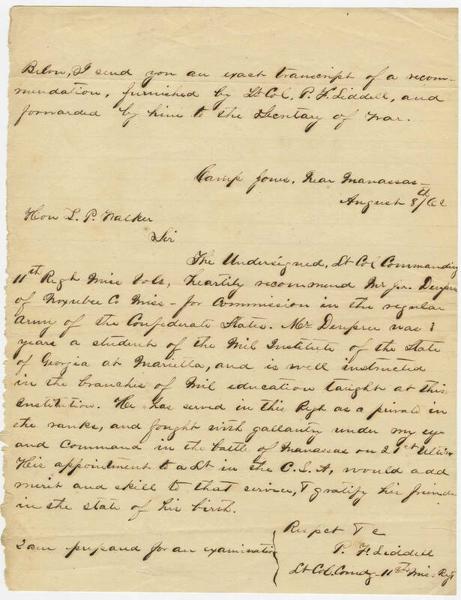 Below, I send you an exact transcript of a recom-
mendation, furnished by Lt Col. P. F. Liddell, and
forwarded by him to the Secretary of War.
Camp Jones, Near Manassas
August 8th/62
Hon L. P. Walker
Sir
The Undersigned, Lt Col Commanding
11th Regt Miss Vols, heartily recommend Mr
of Noxubee C. Miss - for commission in the regular
Army of the Confederate States. Mr was
years a student of the Mil Institute of the State
of Georgia at Marietta, and is well instructed
in the branches of Mil education taught at this
institution. He has served in this Regt as a private in
the ranks, and fought with gallantry under my eye
and Command in the battle of Manassas on 21st
His appointment to a Lt in the C. S. A, would add
merit and skill to that service, & gratify his friends
in the state of his birth.
Respct &c
I am prepared for an examination
P. F. Liddell
Lt Col. Comdg 11th Miss. Regt